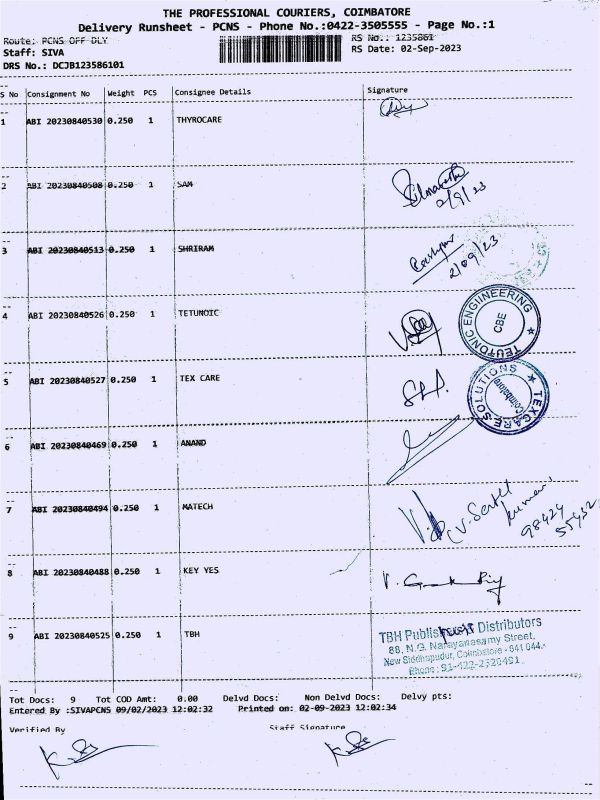 THE PROFESSIONAL COURIERS, COIMBATORE
Delivery Runsheet - PCNS - Phone No.:0422-3505555 - Page No.:1
Route: PCNS OFF DLY
RS No.: 1235861
Staff: SIVA
RS Date: 02-Sep-2023
DRS No.: DCJB123586101
S No Consignment No Weight PCS Consignee Details Signature
1 ABI 20230840530 0.250 1 THYROCARE
2 ABI 20230840508 0.250 1 SAM
2/9/23
3 ABI 20230840513 0.250 1 SHRIRAM
2/09/23
4 ABI 20230840526 0.250 1 TETUNOIC
TEUTONIC ENGIINEERING
CBE
5 ABI 20230840527 0.250 1 TEX CARE
TEXCARE SOLUTIONS
Coimbatore
6 ABI 20230840469 0.250 1 ANAND
7 ABI 20230840494 0.250 1 MATECH
98424
55432
8 ABI 20230840488 0.250 1 KEY YES
9 ABI 20230840525 0.250 1 TBH
TBH Publishers Distributors
88, N.G. Narayanasamy Street,
New Siddhapudur, Coimbatore - 641 044.
Phone : 91-422-2520491
Tot Docs: 9 Tot COD Amt: 0.00 Delvd Docs: Non Delvd Docs: Delvy pts:
Entered By :SIVAPCNS 09/02/2023 12:02:32 Printed on: 02-09-2023 12:02:34
Verified By Staff Signature